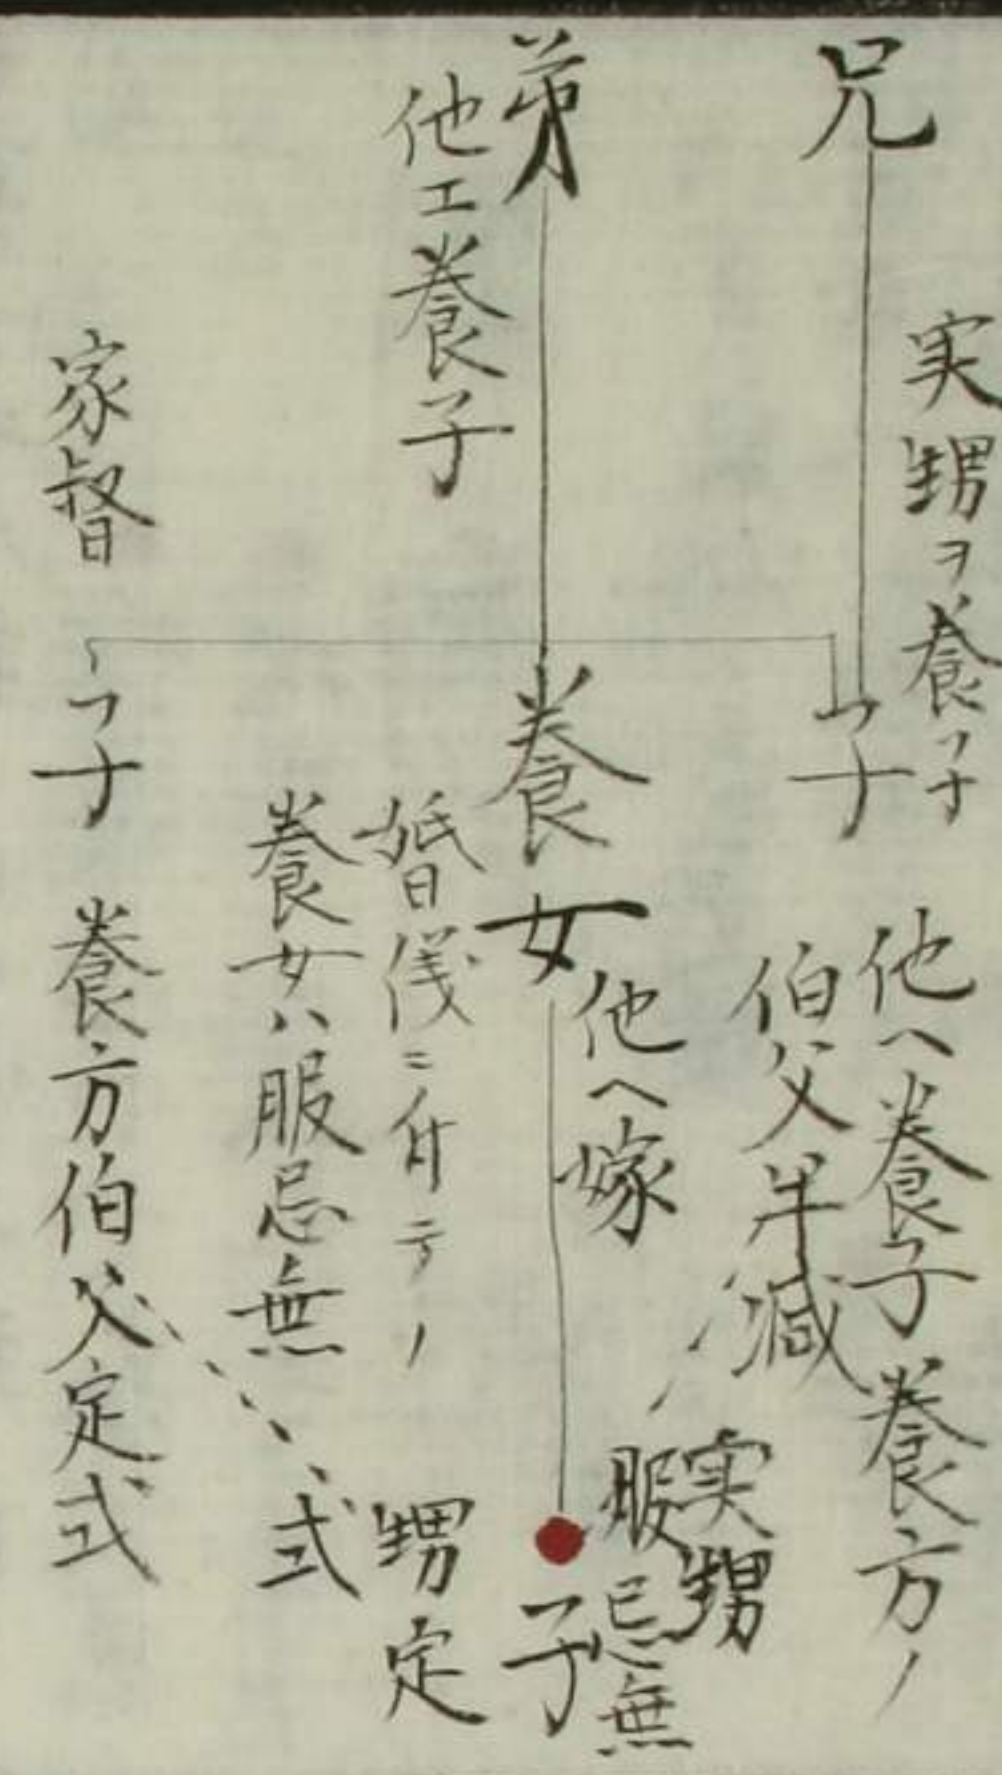 兄
実甥ヲ養子
子
他ヘ養子養方ノ
伯父半減
実甥
服忌無
弟
他エ養子
養女
他ヘ嫁
子
婚儀ニ付テノ
養女ハ服忌無
甥定
式
家督
子
養方伯父定式